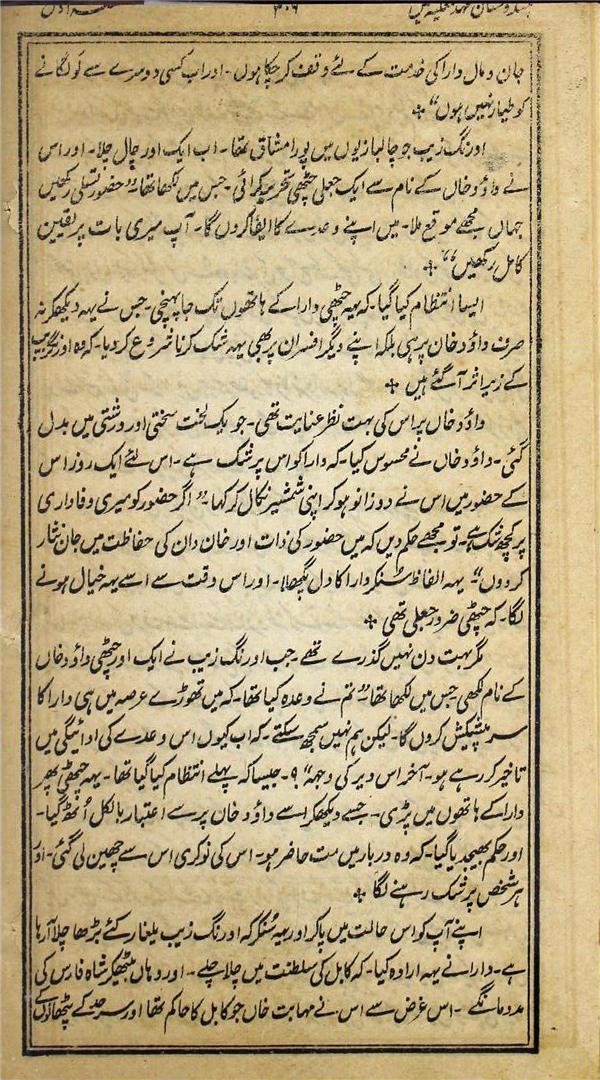 ہندوستان عہد مغلیہ میں ۳۰۶
جان و مال دارا کی خدمت کے لئے وقف کر چکا ہوں۔ اور اب کسی دوسرے سے لَو لگانے
کو طیار نہیں ہوں“ ❖
اورنگ زیب جو چالبازیوں میں پورا مشاق تھا۔ اب ایک اور چال چلا۔ اور اس
نے داؤد خاں کے نام سے ایک جعلی چٹھی تحریر کرائی۔ جس میں لکھا تھا۔ ”حضور تسلی رکھیں
جہاں مجھے موقع ملا۔ میں اپنے وعدے کا ایفا کروں گا۔ آپ میری بات پر یقین
کامل رکھیں“ ❖
ایسا انتظام کیا گیا۔ کہ یہ چٹھی دارا کے ہاتھوں تک جا پہنچی۔ جس نے یہہ دیکھکر نہ
صرف داؤد خان پر ہی بلکہ اپنے دیگر افسران پر بھی یہہ شک کرنا شروع کر دیا۔ کہ وہ اورنگزیب
کے زیر اثر آ گئے ہیں ❖
داؤد خاں پر اس کی بہت نظر عنایت تھی۔ جو یک لخت سختی اور درشتی میں بدل
گئی۔ داؤد خاں نے محسوس کیا۔ کہ دارا کو اس پر شک ہے۔ اس لئے ایک روز اس
کے حضور میں اس نے دوزانو ہو کر اپنی شمشیر نکال کر کہا۔ ”اگر حضور کو میری وفاداری
پر کچھ شک ہے۔ تو مجھے حکم دیں کہ میں حضور کی ذات اور خان دان کی حفاظت میں جان نثار
کر دوں“۔ یہہ الفاظ سُنکر دارا کا دل پگھلا۔ اور اس وقت سے اسے یہہ خیال ہونے
لگا۔ کہ چٹھی ضرور جعلی تھی ❖
مگر بہت دن نہیں گذرے تھے۔ جب اورنگ زیب نے ایک اور چٹھی داؤد خاں
کے نام لکھی جس میں لکھا تھا۔ ”تم نے وعدہ کیا تھا۔ کہ میں تھوڑے عرصہ میں ہی دارا کا
سر پیشکش کردوں گا۔ لیکن ہم نہیں سمجھ سکتے۔ کہ اب کیوں اس وعدے کی ادائیگی میں
تاخیر کر رہے ہو۔ آخر اس دیر کی وجہ“ ؟۔ جیسا کہ پہلے انتظام کیا گیا تھا۔ یہہ چٹھی پھر
دارا کے ہاتھوں میں پڑی۔ جسے دیکھکر اسے داؤد خان پر سے اعتبار بالکل اُٹھ گیا۔
اور حکم بھیجدیا گیا۔ کہ وہ دربار میں مت حاضر ہو۔ اس کی نوکری اس سے چھین لی گئی۔ اور
ہر شخص پر شک رہنے لگا ❖
اپنے آپ کو اس حالت میں پا کر اور یہ سُنکر کہ اورنگ زیب یلغار کئے بڑھا چلا آ رہا
ہے۔ دارا نے یہہ ارادہ کیا۔ کہ کابل کی سلطنت میں چلا چلے۔ اور وہاں بیٹھکر شاہ فارس کی
مدد مانگے۔ اس غرض سے اس نے مہابت خاں جو کابل کا حاکم تھا اور سرحد کے پٹھانوں کے